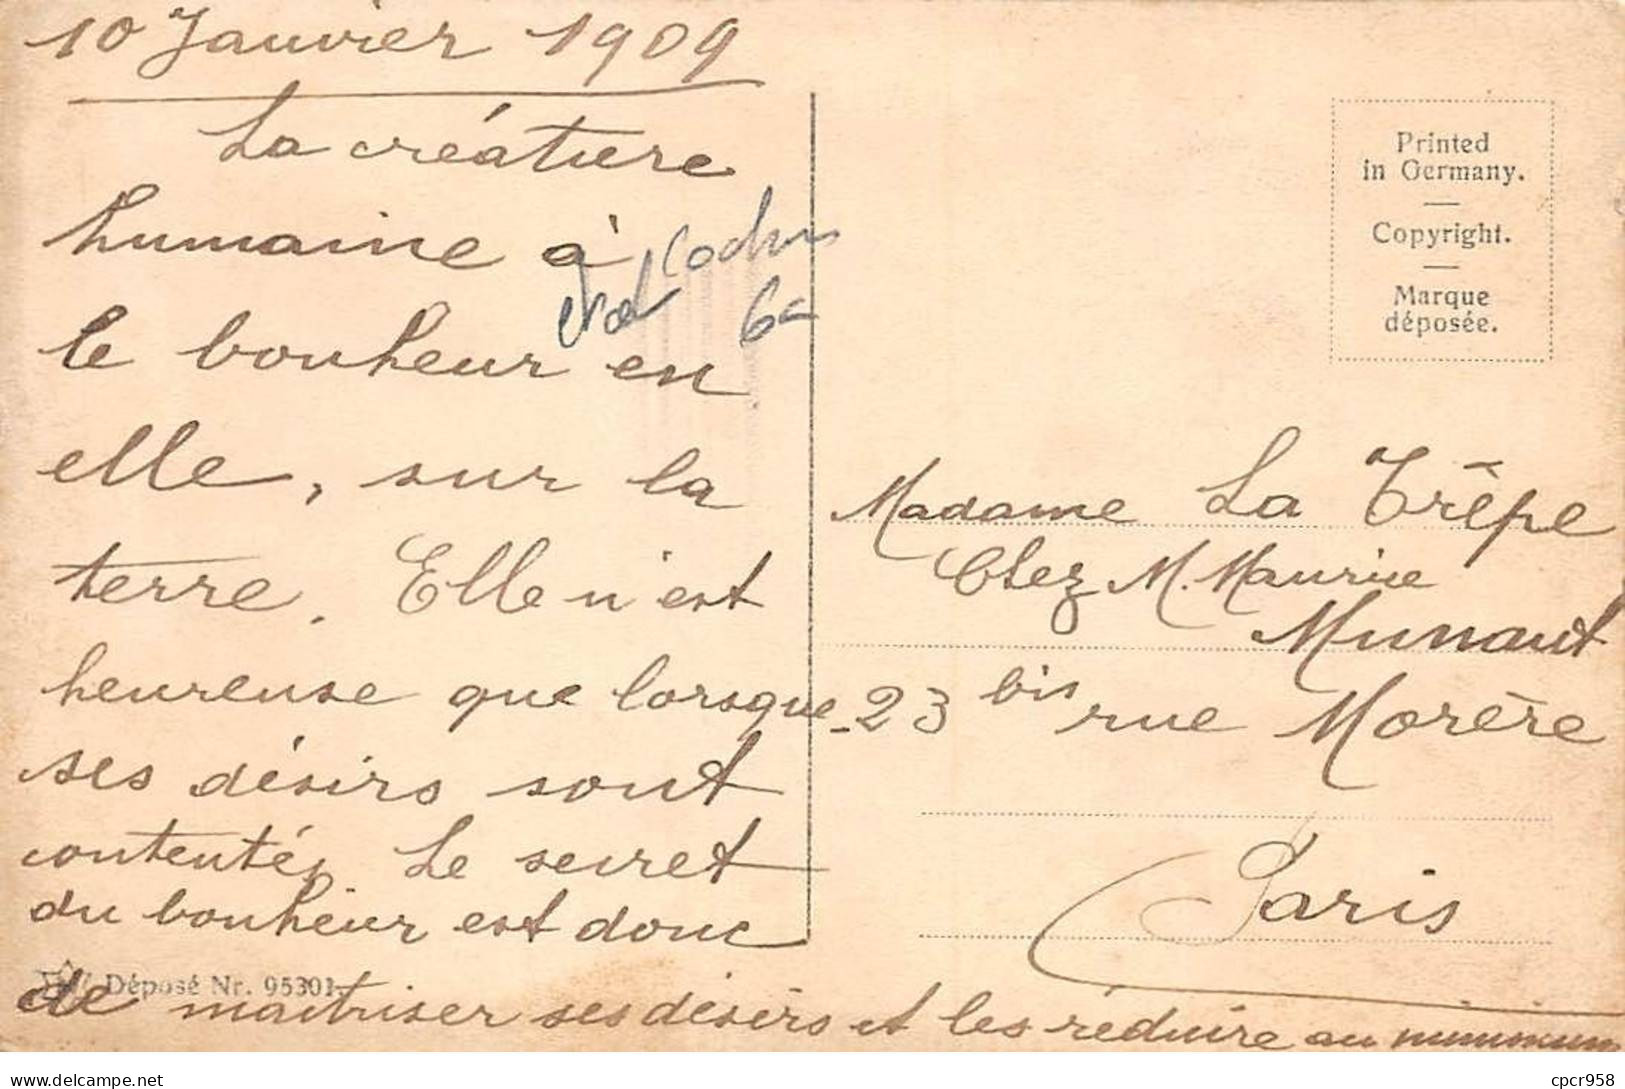 10 Janvier 1909
La créature
humaine à
le bonheur en
elle, sur la
terre. Elle n'est
heureuse que lorsque
ses désirs sont
contentés. Le secret
du bonheur est donc
de maîtriser ses désirs et les réduire au minimum
Déposé Nr. 95301
6c
Printed
in Germany.
Copyright.
Marque
déposée.
Madame La Trêpe
Chez M. Maurice
Munaut
23 bis rue Morère
Paris
cpcr958